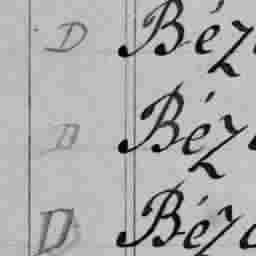 D Béz
D Béz
D Béz